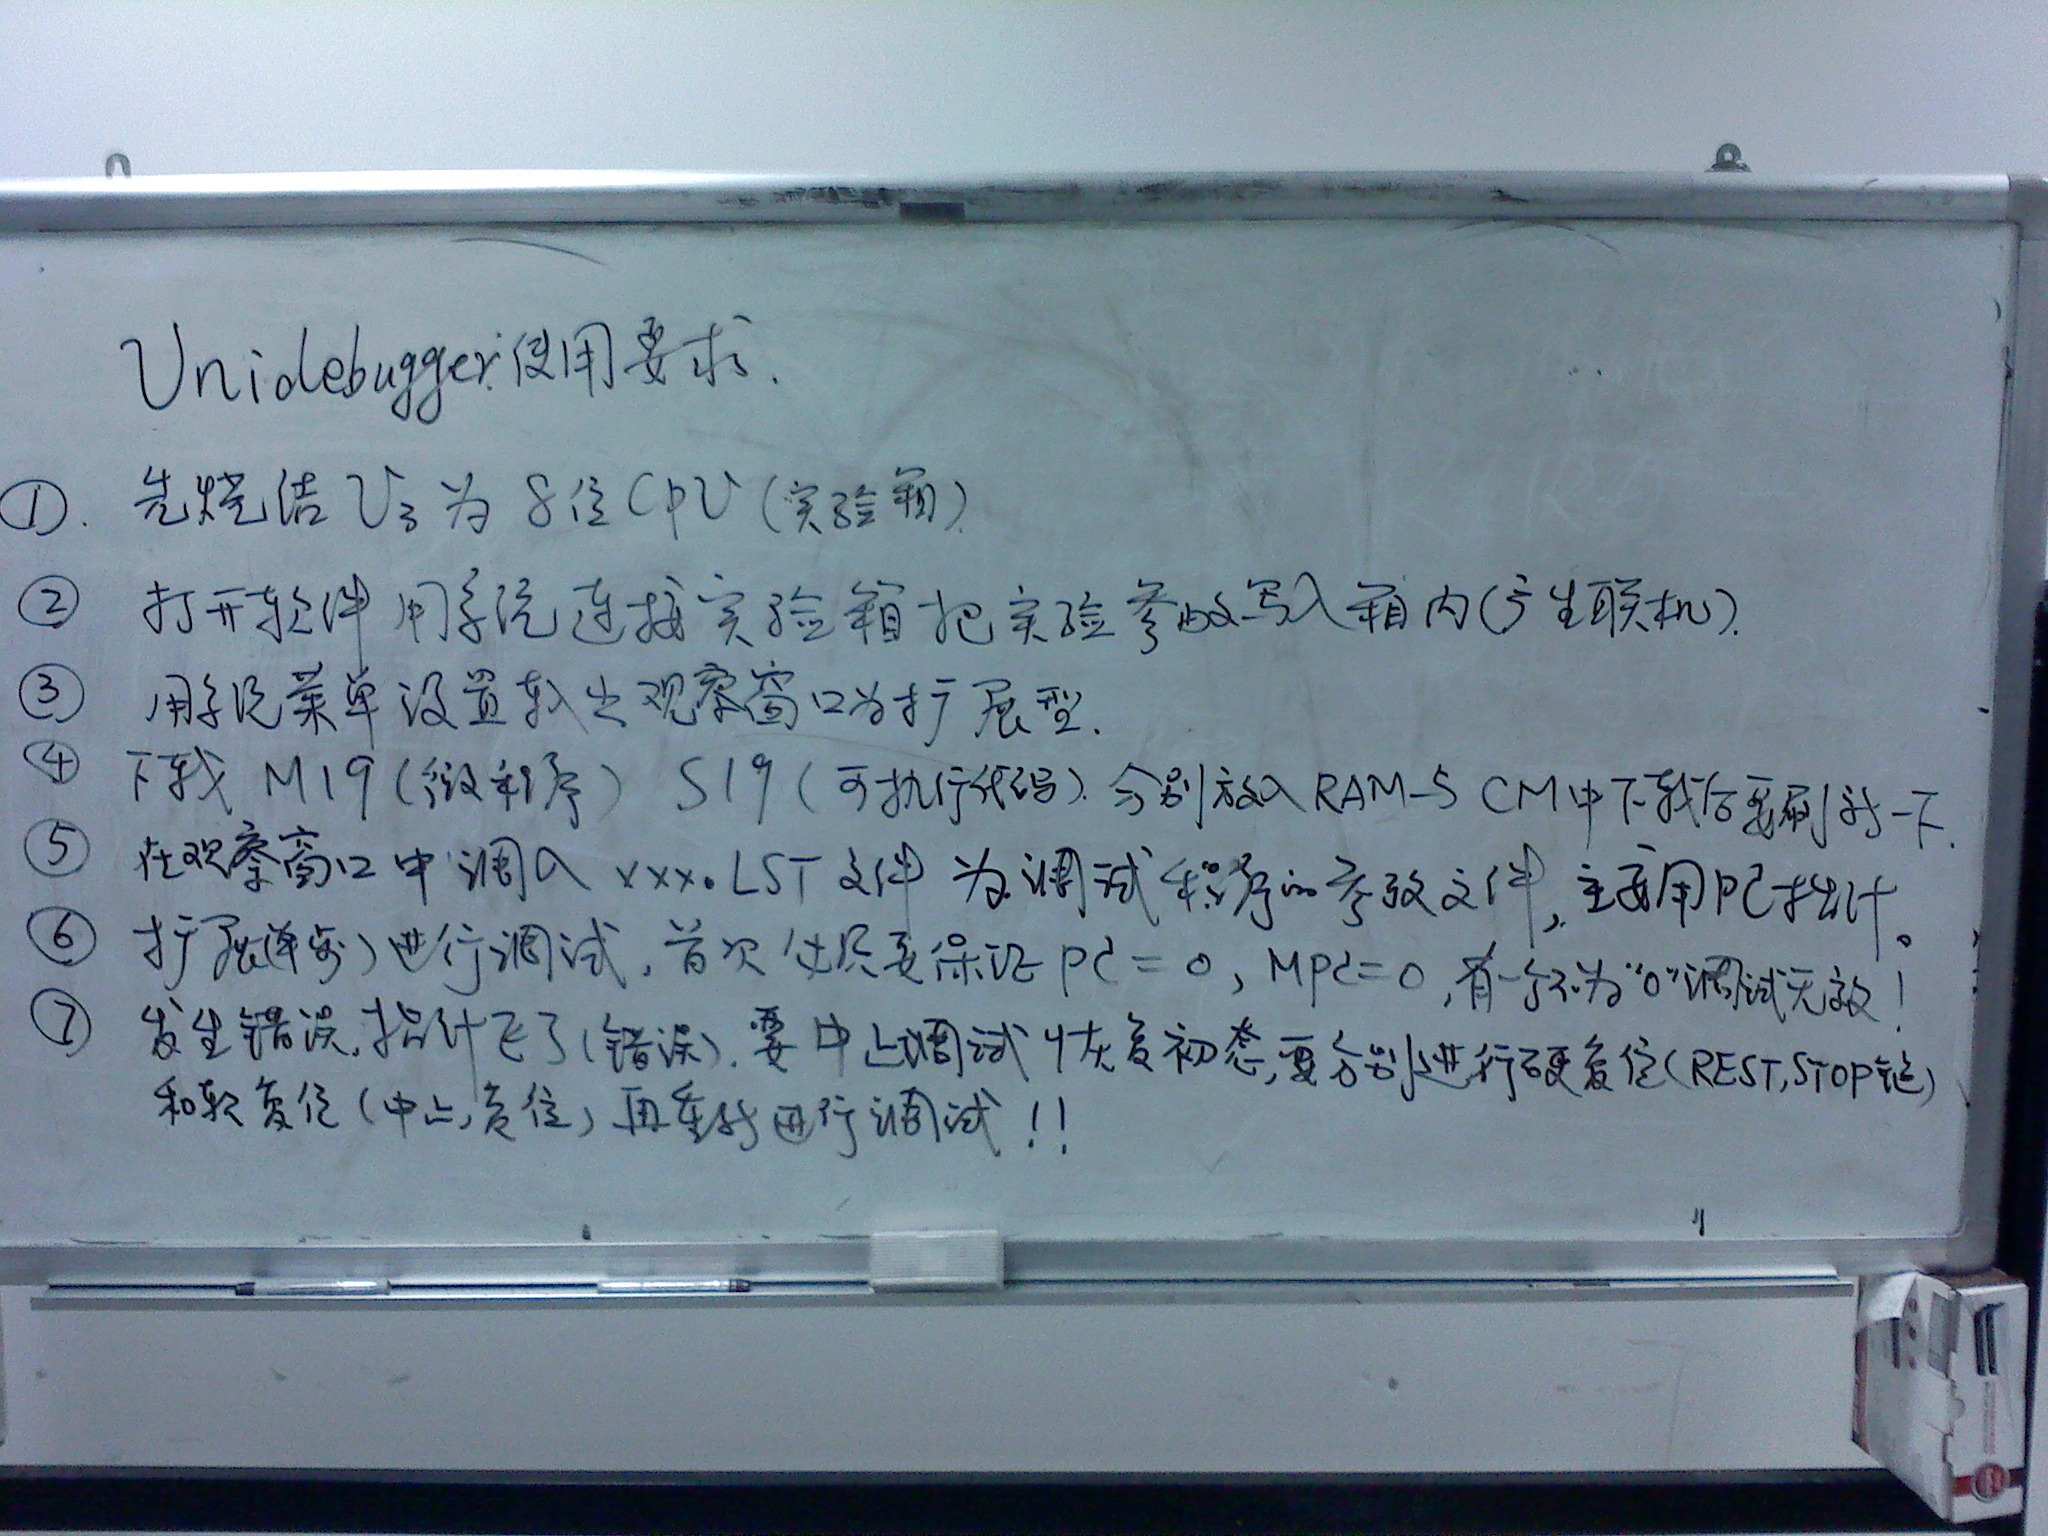 Unidebugger使用要求.
①. 先烧结 U3 为 8位CPU (实验箱)
② 打开软件 用系统连接实验箱把实验参数写入箱内(产生联机).
③ 用系统菜单设置软出观察窗口为扩展型.
④ 下载 M19 (微程序) S19 (可执行代码). 分别放入RAM-S CM中下载后要刷新一下.
⑤ 在观察窗口中调入 xxx.LST 文件 为调试程序的参数文件, 主要用PC指针。
⑥ 扩展(单步) 进行调试, 首次 要保证 PC=0, MPC=0, 有一个不为“0”调试无效!
⑦ 发生错误, 指针飞了(错误). 要中止调试 恢复初态, 要分别进行硬复位(REST,STOP键)
和软复位(中止,复位) 再重新进行调试!!